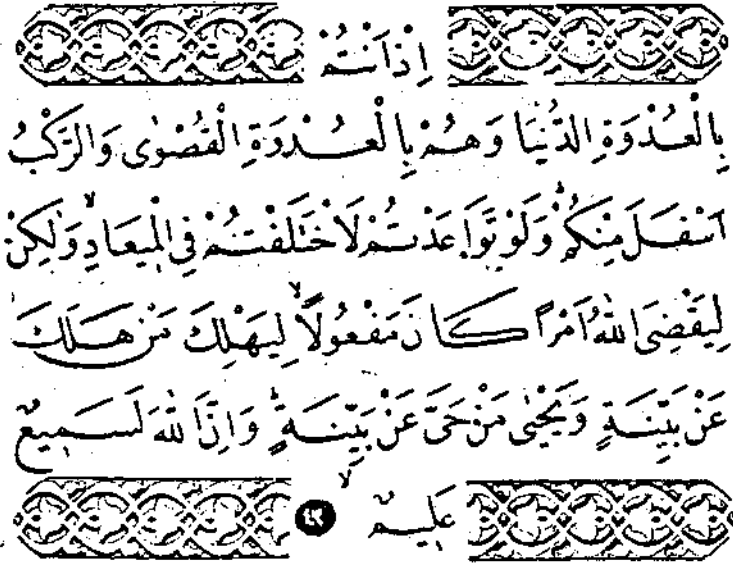 اِذْ اَنْتُمْ
بِالْعُدْوَةِ الدُّنْيَا وَهُمْ بِالْعُدْوَةِ الْقُصْوٰى وَالرَّكْبُ
اَسْفَلَ مِنْكُمْ ۗ وَلَوْ تَوَاعَدْتُمْ لَاخْتَلَفْتُمْ فِى الْمِيعَادِ ۙ وَلٰكِنْ
لِيَقْضِىَ اللّٰهُ اَمْرًا كَانَ مَفْعُولًا ۙ لِيَهْلِكَ مَنْ هَلَكَ
عَنْ بَيِّنَةٍ وَيَحْيٰى مَنْ حَىَّ عَنْ بَيِّنَةٍ ۗ وَاِنَّ اللّٰهَ لَسَمِيعٌ
عَلِيمٌ ۙ ٤٢